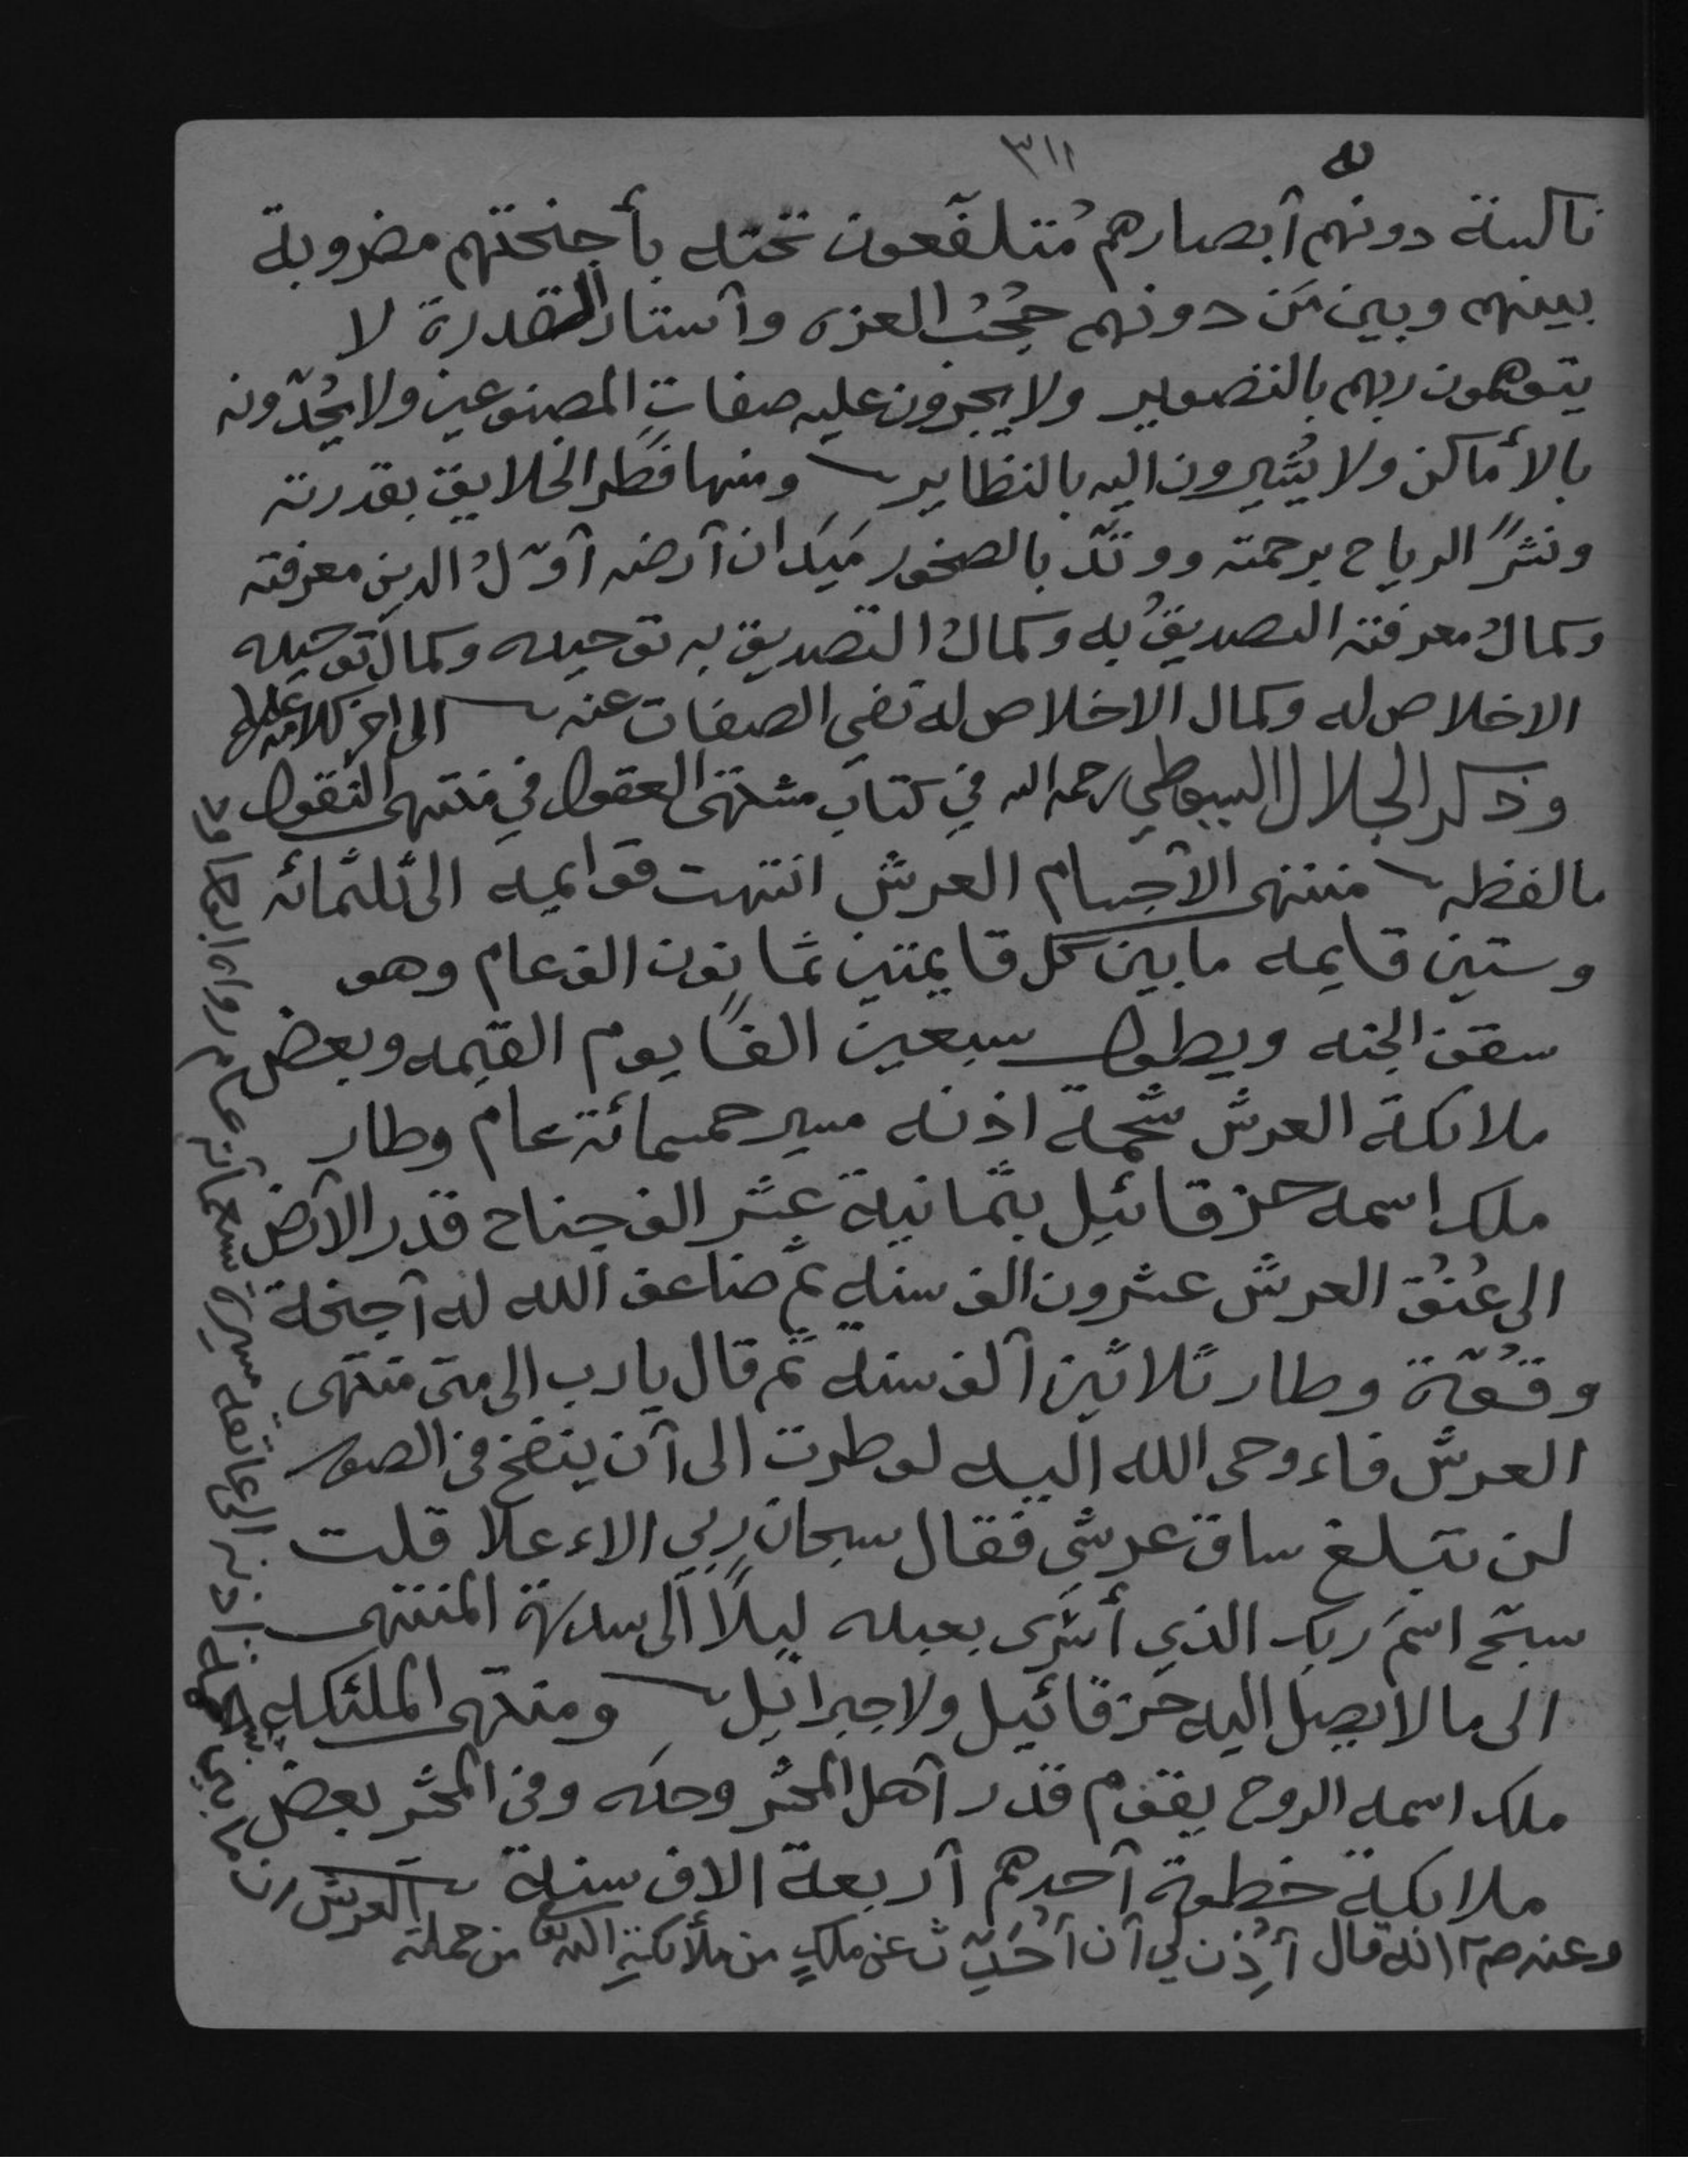 ٣١١
له
ناكسة دونهم أبصارهم مُتلفّعون تحته بأجنحتهم مضروبة
بينهم وبين مَن دونهم حُجُب العزه وأستار القدرة لا
يتوهمون ربهم بالتصوير ولا يجرون عليه صفاتِ المصنوعين ولا يحُدّونه
بالأماكن ولا يُشيرون اليه بالنظاير ومنها فطَر الخلايق بقدرته
ونشَر الرياح برحمته ووتّد بالصخور مَيَدان أرضه أوّلُ الدين معرفته
وكمالُ معرفته التصديقُ به وكمالُ التصديق به توحيده وكمال توحيده
الاخلاص له وكمال الاخلاص له نفي الصفات عنه الى اخر كلامه عليلم
وذكر الجلال السيوطي رحمه الله في كتاب مشتهى العقول في منتهى النقول
مالفظه منتهى الأجسام العرش انتهت قوايمه الى ثلثمائه
وستين قايمه ما بين كل قايمتين ثمانون الف عام وهو
سقف الجنه ويطول سبعين الفًا يوم القيمه وبعض
ملائكة العرش شحمة اذنه مسير خمسمائة عام وطار
ملك اسمه حزقائيل بثمانية عشر الف جناح قدر الأرض
الى عُنُق العرش عشرون الف سنه ثم ضاعف الله له أجنحة
وقُوّة وطار ثلاثين ألف سنة ثم قال يا رب الى متى منتهى
العرش فاءوحى الله اليه لو طرت الى أن ينفخ في الصور
لن تبلغ ساق عرشي فقال سبحان ربي الاءعلا قلت
سبّح اسمَ ربك الذي أسْرَى بعبده ليلًا الى سدرة المنتهى
الى ما لا يصل اليه حزقائيل ولا جبرائيل ومنتهى الملئكه
ملك اسمه الروح يقوم قدر أهل المحشر وحده وفي المحشر بعض
ملائكة خطوة أحدهم أربعة الاف سنة
وعنه صم انه قال أُذِن لي أن أُحَدِّث عن ملكٍ من ملائكةِ الله تع من حملة
العرش ان ما بين شحمة اذنه الى عاتقه مسيرة سبعمائة عام رواه ابوداود